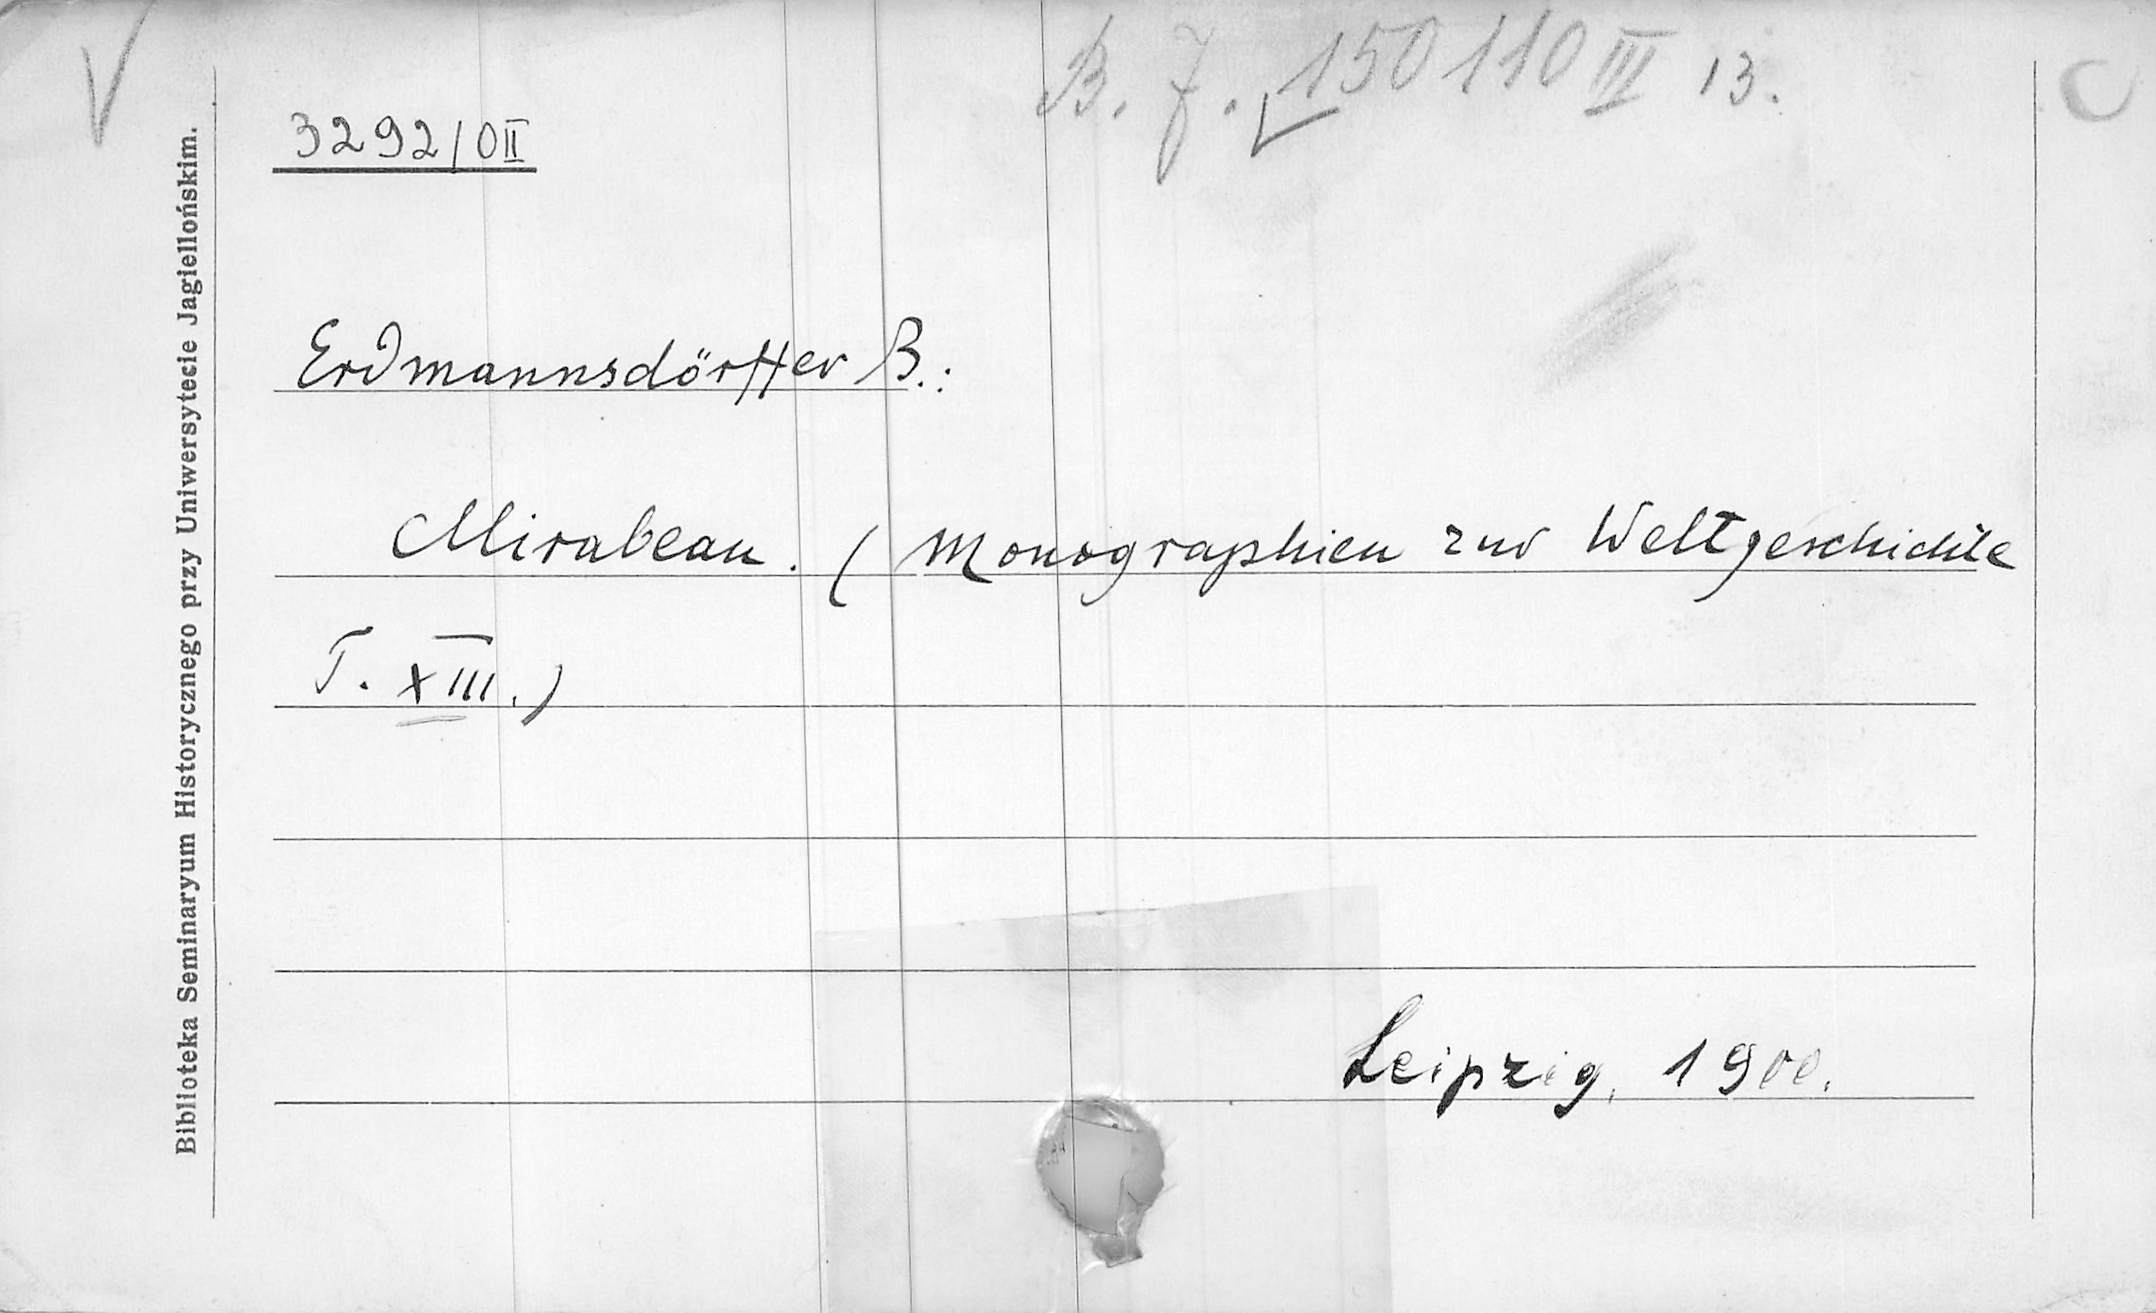 B. J. 150110 III 13.
3292/0II
Erdmannsdörffer B.:
Mirabeau. (Monographien zur Weltgeschichte
T. XIII.)
Leipzig, 1900.
Biblioteka Seminaryum Historycznego przy Uniwersytecie Jagiellońskim.